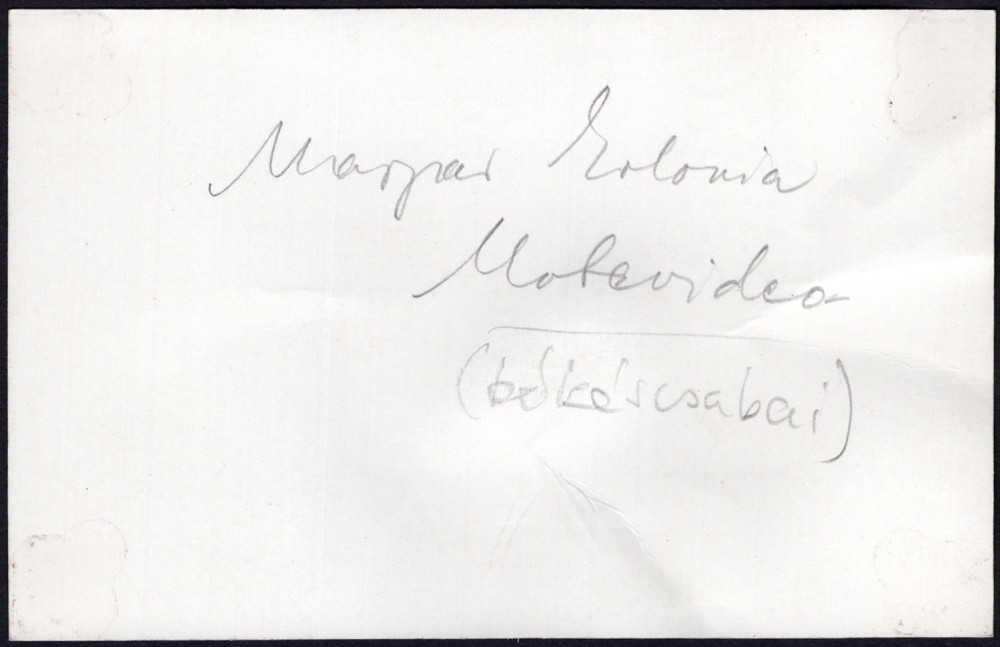 Magyar Kolonia
Motevideo
(békéscsabai)